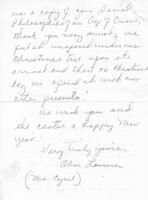 us a copy of your Social
Philosophies in an Age of Crisis.
Thank you very much; we
put it unopened under our
Christmas tree upon its
arrival and then, on Christmas
day we opened it with our
other presents!
We wish you and
the center a happy New
Year.
Very truly yours,
(Mrs. Cyril)